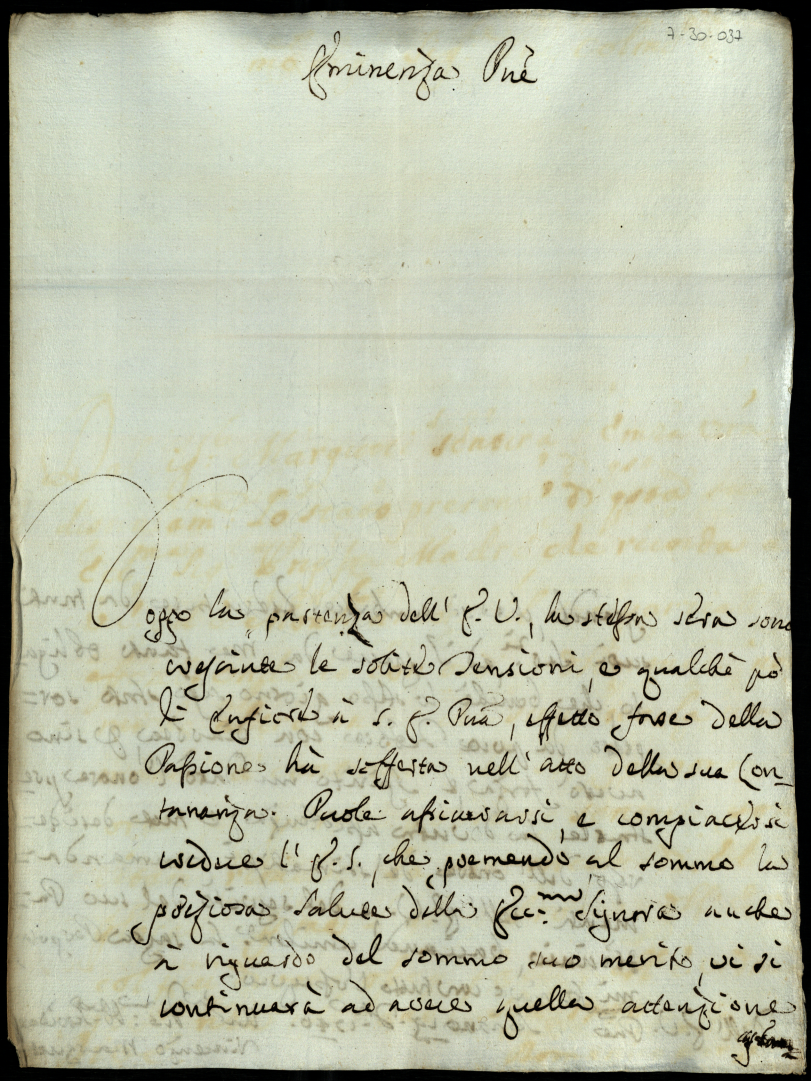 7-30-037
Eminenza Pnē
Doppo la partenza dell' E. V., la stessa sera sono
cresciute le solite Tensioni, e qualche pò
li à S. E. Pnā, effetto forse della
Passione hà sofferta nell' atto della sua Lon-
tananza. Puole assicurarsi, e compiacersi
credere l' E. S., che premendo al sommo la
preziosa Salute della Ecc.ma Signora anche
à riguardo del sommo suo merito, vi si
continuarà ad avere quella attenzione